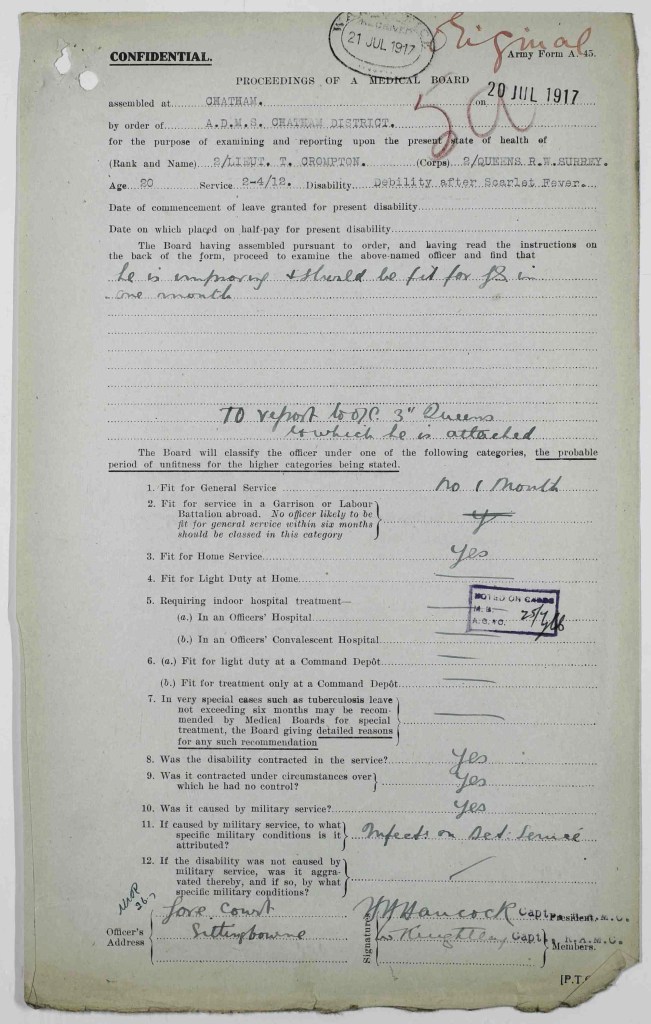 Original
21 JUL 1917
CONFIDENTIAL.
Army Form A. 45.
PROCEEDINGS OF A MEDICAL BOARD
5a
assembled at CHATHAM. on 20 JUL 1917
by order of A.D.M.S. CHATHAM DISTRICT.
for the purpose of examining and reporting upon the present state of health of
(Rank and Name) 2/LIEUT. T. CROMPTON. (Corps) 2/QUEENS R.W.SURREY.
Age 20 Service 2-4/12. Disability Debility after Scarlet Fever.
Date of commencement of leave granted for present disability
Date on which placed on half-pay for present disability
The Board having assembled pursuant to order, and having read the instructions on
the back of the form, proceed to examine the above-named officer and find that
he is improving & should be fit for GS in
one month
To report to O/C. 3" Queens
to which he is attached
The Board will classify the officer under one of the following categories, the probable
period of unfitness for the higher categories being stated.
1. Fit for General Service no 1 Month
2. Fit for service in a Garrison or Labour
Battalion abroad. No officer likely to be
fit for general service within six months
should be classed in this category
3. Fit for Home Service Yes
4. Fit for Light Duty at Home
5. Requiring indoor hospital treatment—
NOTED ON CARDS
(a.) In an Officers' Hospital
25/7
(b.) In an Officers' Convalescent Hospital
6. (a.) Fit for light duty at a Command Depôt
(b.) Fit for treatment only at a Command Depôt
7. In very special cases such as tuberculosis leave
not exceeding six months may be recom-
mended by Medical Boards for special
treatment, the Board giving detailed reasons
for any such recommendation
8. Was the disability contracted in the service? Yes
9. Was it contracted under circumstances over
which he had no control? Yes
10. Was it caused by military service? Yes
11. If caused by military service, to what
specific military conditions is it
attributed? Infection Act: Service
12. If the disability was not caused by
military service, was it aggra-
vated thereby, and if so, by what
specific military conditions?
26.7
Officer's
Address
Gore Court
Sittingbourne
Signatures
Hancock Capt. President.
Capt. R.A.M.C.
Members.
[P.T.